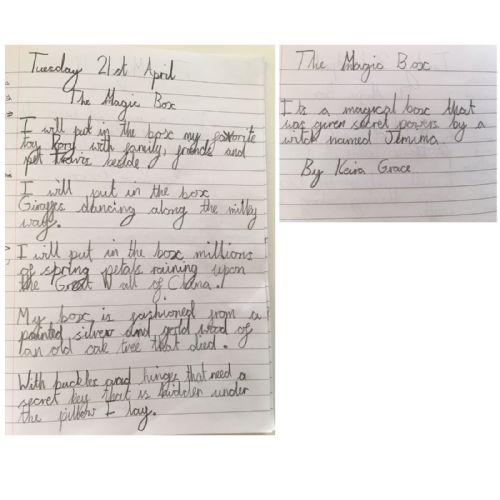 Tuesday 21st April
The Magic Box
I will put in the box my favorite
toy with family, friends and
pet beside
I will put in the box
Giraffes dancing along the milky
way.
I will put in the box millions
of spring petals raining upon
the Great Wall of Chana.
My box is fashioned from a
painted silver and gold wood of
an old oak tree that died.
With buckles and hinges that need a
secret key that is hidden under
the pillow I lay.
The Magic Box
It's a magical box that
was given secret powers by a
witch named Jemima.
By Keira Grace